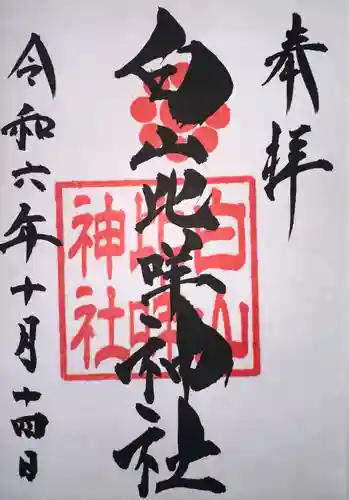 奉拝
白山比咩神社
白山
比咩
神社
令和六年十月十四日